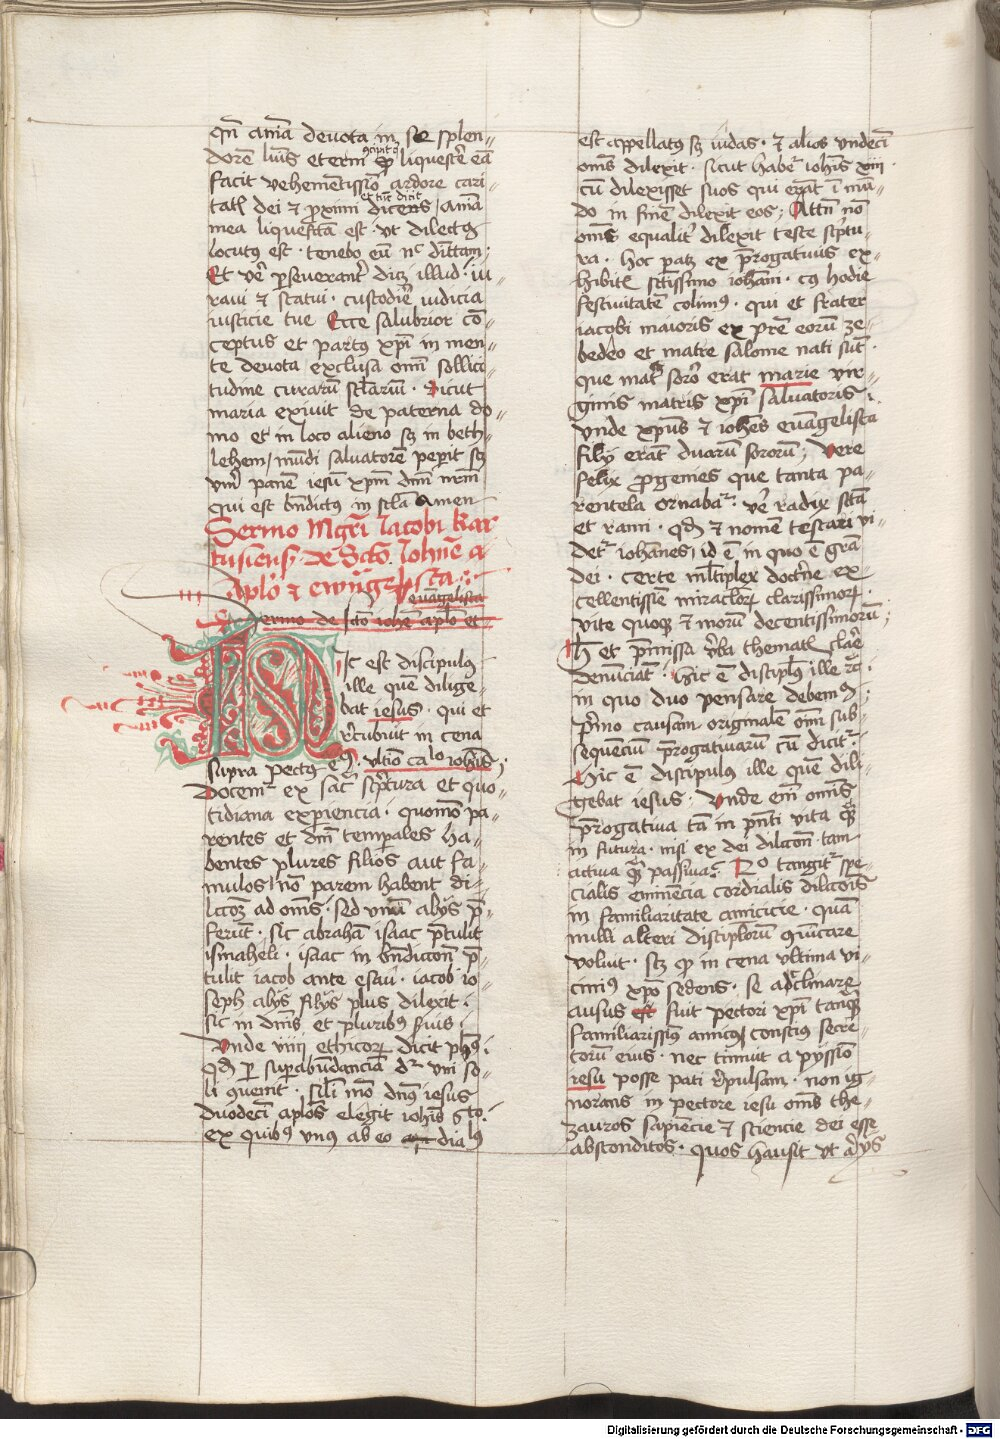 qn̄ aīa devota in se splen-
dorē lūis etern̄ ꝙ liquescē eā
facit vehemētissīo ardore cari-
tatꝭ dei ⁊ proximi dicens Aīa
mea liquefcā est · vt dilectꝰ
locutꝰ est · tenebo eū nͨ dittam̄
Et vē perseverant̄ dicꝫ illud · iu-
ravi ⁊ statui · custodiē iudicia
iusticie tue Ecce salubrior cō-
ceptus et partꝰ xp̄i in men-
te devota exclusa omī sollici-
tudine curarum sclarium · Sicut
maria exivit de paterna do-
mo et in loco alieno sꝫ in beth-
lehem / mūdi salvatorē peperit sꝫ
vivū panē iesū xpm̄ dnm̄ nr̄m
qui est bn̄dictꝰ in scl̄a Amen
Sermo Mgr̄i Jacobi Kar
tusiens̄ de Scō Joh̄ne a
aplo ⁊ ewāgelista
evāgelista
Sermo de sctō iohē aplō et
Hic est discipulus
ille quē dilige-
bat iesus · qui et
recubuit in cena
supra pectꝰ eiꝰ · vltīo caͦ iohīs
Docemʳ ex sacͣ scptura et quo-
tidiana experiencia · quomō pa-
rentes et dnī temporales ha-
bentes plures filios aut fa-
mulos / nō parem habent di-
lctōꝫ ad omēs · sed vnū alijs p̄-
ferūt · sic abrahā isaac p̄tulit
ismaheli · isaac in bn̄dictōn̄ p̄-
tulit iacob ante esau · iacob io-
seph alijs filijs plus dilexit ·
sic in dnīs et pluribꝰ suis ·
Vnde viiij ethicoꝝ dicit phūs ·
qꝫ per superabūdanciā dʳ vni so-
li quenit · Sili mō dnꝰ iesus
duodecī aplōs elegit iohīs 6to
ex quibꝰ vnꝰ ab eo dialꝰ
est appellatꝰ sꝫ iudas · ⁊ alios vndecī
omēs dilexit · sicut habeʳ iohīs xiij ·
cū dilexisset suos qui erāt ī mū-
do in finē dilexit eos / Attn̄ nō
omēs equalitʳ dilexit teste scptu-
ra · hoc patꝫ ex p̄rogativis ex-
hibitꝭ sctissimo iohāni · cꝰ hodie
festivitatē colimꝰ · qui et frater
iacobi maioris ex prē eorū ze-
bedeo et matre salome nati sūt ·
que matʳ soror erat marie vir-
ginis matris xp̄i salvatoris ·
Vnde xp̄us ⁊ iohēs evāgelista
filij erāt duarū sororū / Vere
felix progenies que tanta pa-
rentela ornabaʳ · vē radix sctā
et rami · qꝫ ⁊ nomē testari vi-
detʳ iohānes / id ē in quo ē grā
dei · certe mltiplex doctne ex-
cellentissie miraclorꝝ clarissimorꝝ ·
vite quoqꝫ ⁊ morū decentissimorū /
Hͦ et p̄missa verba thematꝭ clarē
denūciāt · Hic ē discipl̄us ille ⁊c̄ ·
in quo duo pensare debemꝰ ·
Primo causam originalē omī sub-
sequēcium p̄rogativarum cū diciʳ ·
Hic ē discipulus ille quē dili-
gebat iesus · Vnde em̄ omīs
p̄rogativa tā in p̄nti vita qꝫ
in futura · nisi ex dei dilc̄on tam
activa qꝫ passiva · 2o tangitʳ spe-
cialis eminēcia cordialis dilc̄ōis
in familiaritate amicicie · quā
nulli alteri discipl̄orum 9mūicare
voluit · sꝫ ꝙ in cena vltima vi-
cinꝰ xpō sedens · se adclinare
ausus fuit pectori xp̄i tanqꝫ
familiarissimꝰ amicꝰ / conscius secre-
torū eius · nec timuit a pyssīo
iesu posse pati repulsam · non ig-
norans in pectore iesu omēs the-
zauros sapiēcie ⁊ sciencie dei esse
absconditos · quos hausit vt alijs
Digitalisierung gefördert durch die Deutsche Forschungsgemeinschaft - DFG